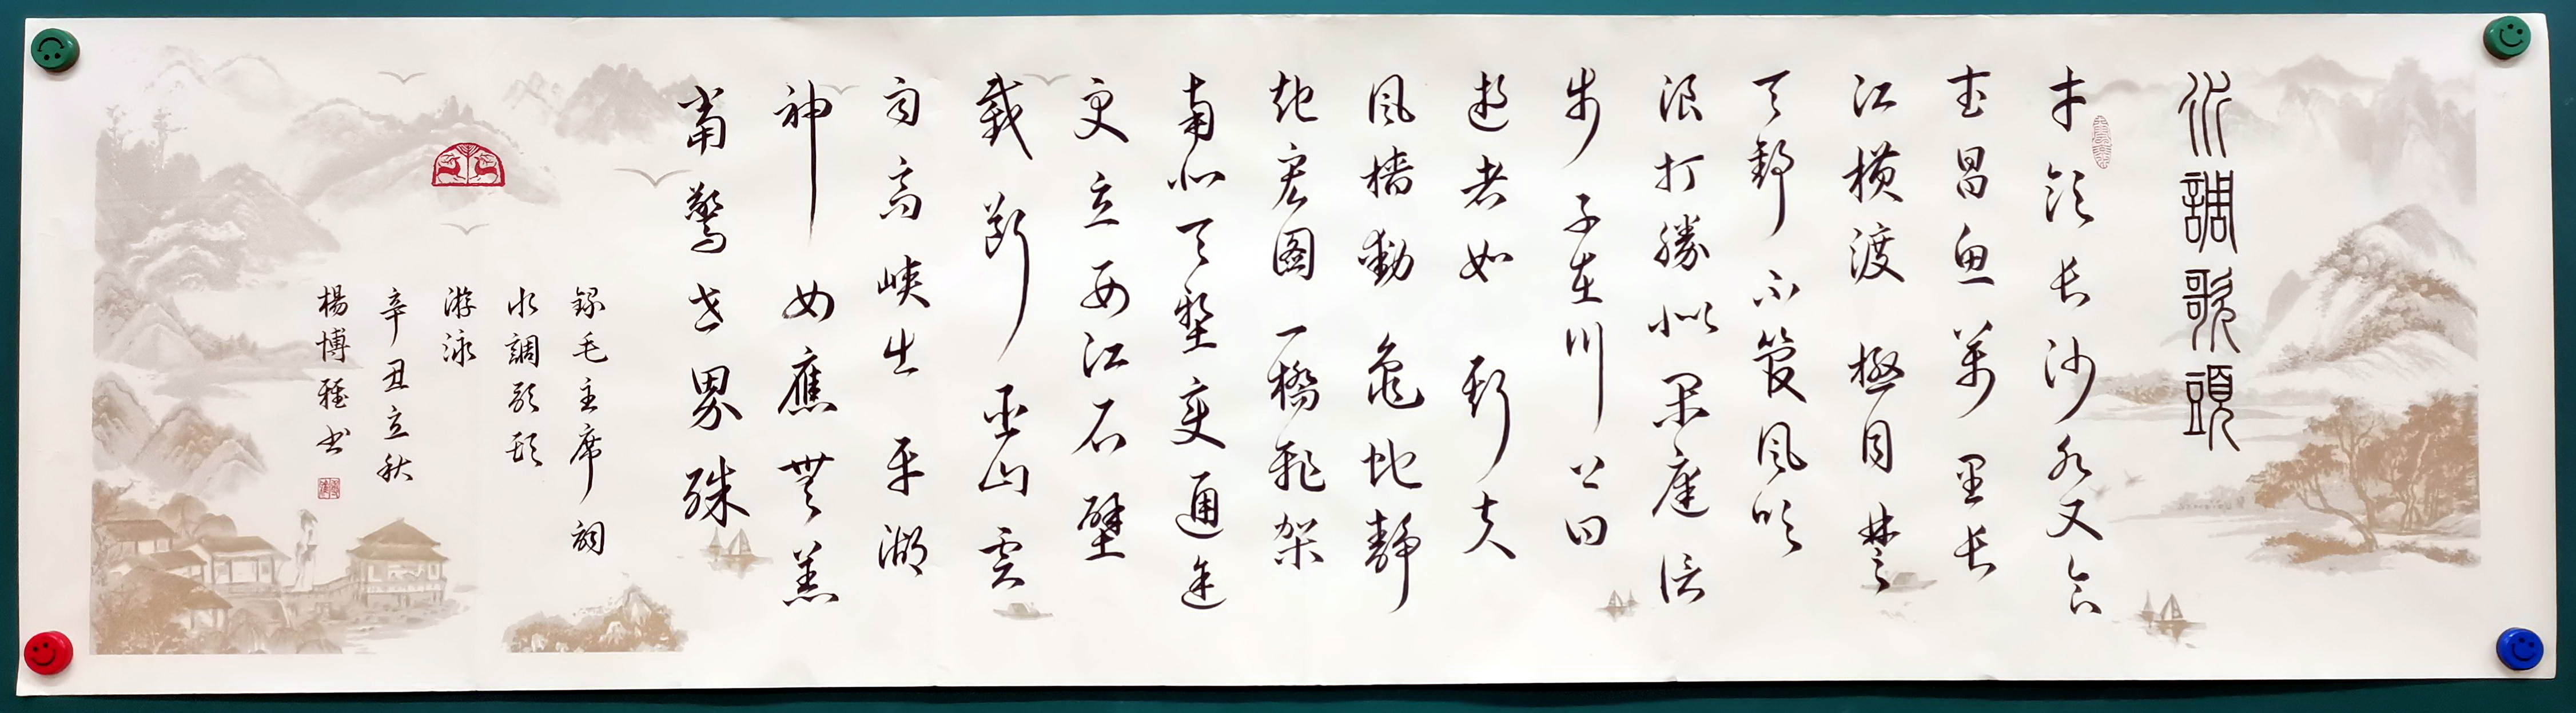 水調歌頭
才饮长沙水又食
武昌魚萬里长
江橫渡極目楚
天舒不管风吹
浪打勝似闲庭信
步子在川上曰
逝者如斯夫
风樯動龟蛇静
起宏图一橋飛架
南北天堑变通途
更立西江石壁
截断巫山雲
雨高峡出平湖
神女應無恙
當驚世界殊
錄毛主席詞
水調歌頭
游泳
辛丑立秋
楊博雅书